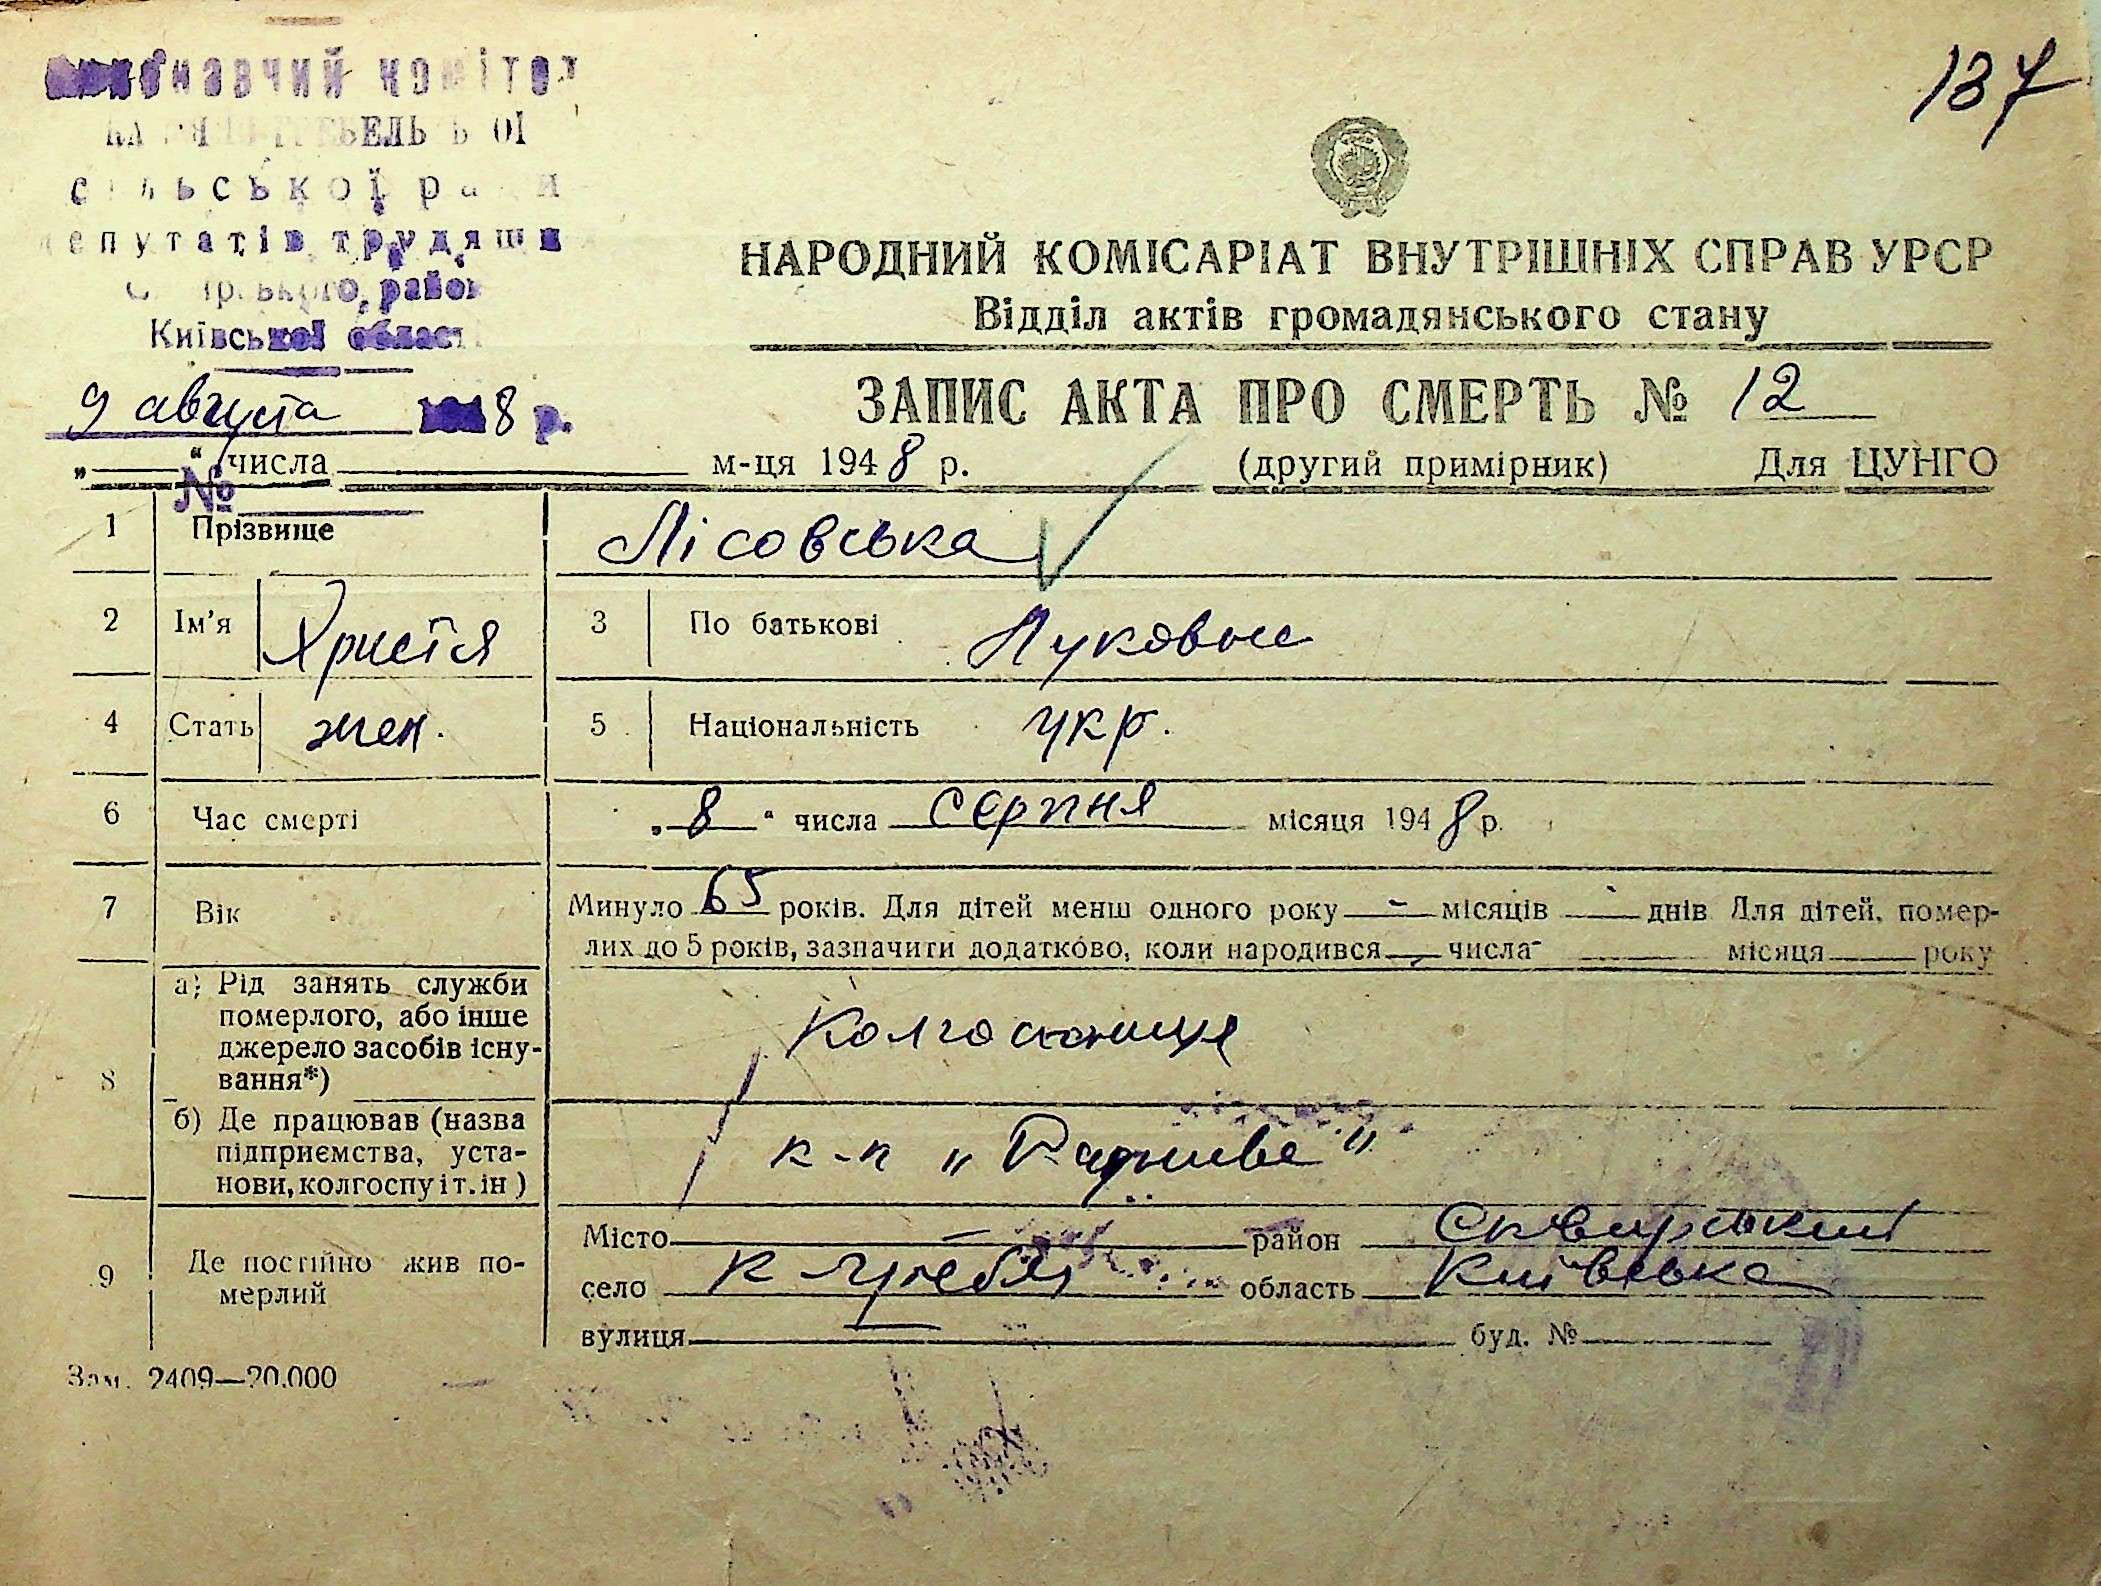 137
виконавчий комітет
сільської ради
депутатів трудящи
район
Київської област
9 августа 1948 р.
№
НАРОДНИЙ КОМІСАРІАТ ВНУТРІШНІХ СПРАВ УРСР
Відділ актів громадянського стану
ЗАПИС АКТА ПРО СМЕРТЬ № 12
„ “ числа м-ця 1948 р. (другий примірник) Для ЦУНГО
1 Прізвище Лісовська
2 Ім'я Христя 3 По батькові Луковна
4 Стать жен. 5 Національність укр.
6 Час смерті „8“ числа серпня місяця 1948 р.
7 Вік Минуло 65 років. Для дітей менш одного року - місяців - днів Для дітей, помер-
лих до 5 років, зазначити додатково, коли народився числа місяця року
8 а) Рід занять служби
померлого, або інше
джерело засобів існу-
вання*)
Колгоспниця
б) Де працював (назва
підприємства, уста-
нови, колгоспу і т. ін)
к-п „ "
9 Де постійно жив по-
мерлий
Місто — район Сквирський
село К Гребля область Київська
вулиця буд. №
Зам. 2409—20.000